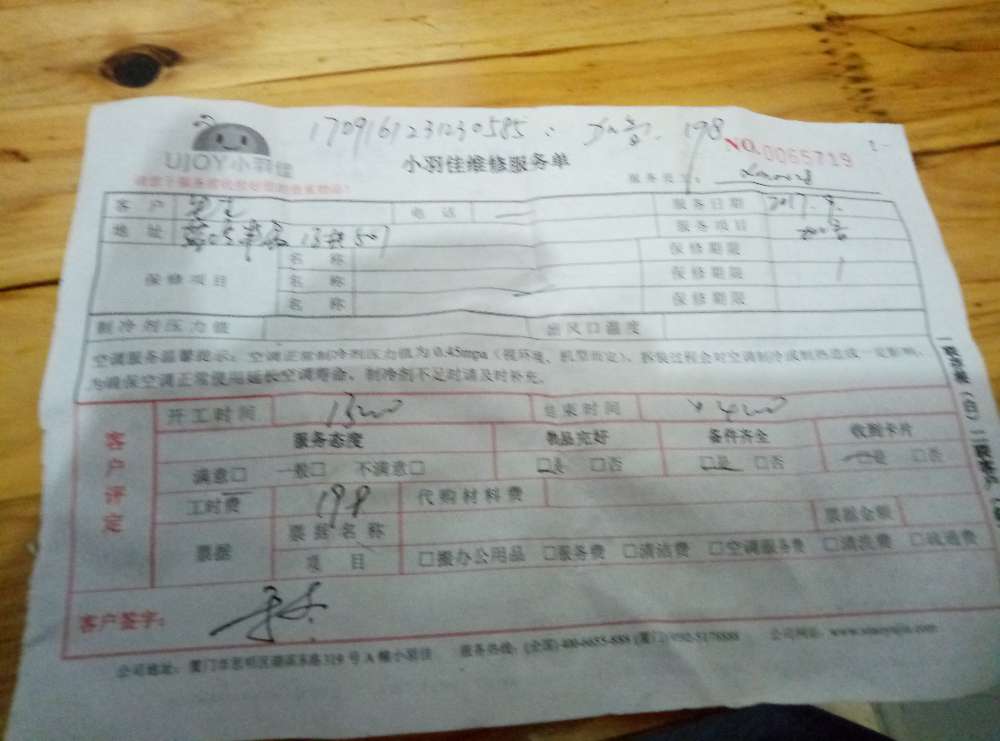 1709161231230585. 198
UJOY小羽佳
小羽佳维修服务单
NO.0065719
客 户
电 话
服务日期 2017.9.
地 址
服务项目
保修项目
名 称
保修期限
名 称
保修期限
名 称
保修期限
制冷剂压力值
出风口温度
空调服务温馨提示：空调正常制冷剂压力值为0.45mpa（视环境、机型而定），拆装过程会对空调制冷或制热造成一定影响，
为确保空调正常使用延长空调寿命，制冷剂不足时请及时补充。
客户评定
开工时间
结束时间
服务态度
物品完好
备件齐全
收到卡片
满意□ 一般□ 不满意□
□是 □否
□是 □否
□是 □否
工时费 198
代购材料费
票据
票据名称
票据金额
项 目
□搬办公用品 □服务费 □清洁费 □空调服务费 □清洗费 □疏通费
客户签字：
公司地址：厦门市思明区 319号A幢小羽佳
服务热线：(全国)400-6655-888 (厦门)
公司网址：